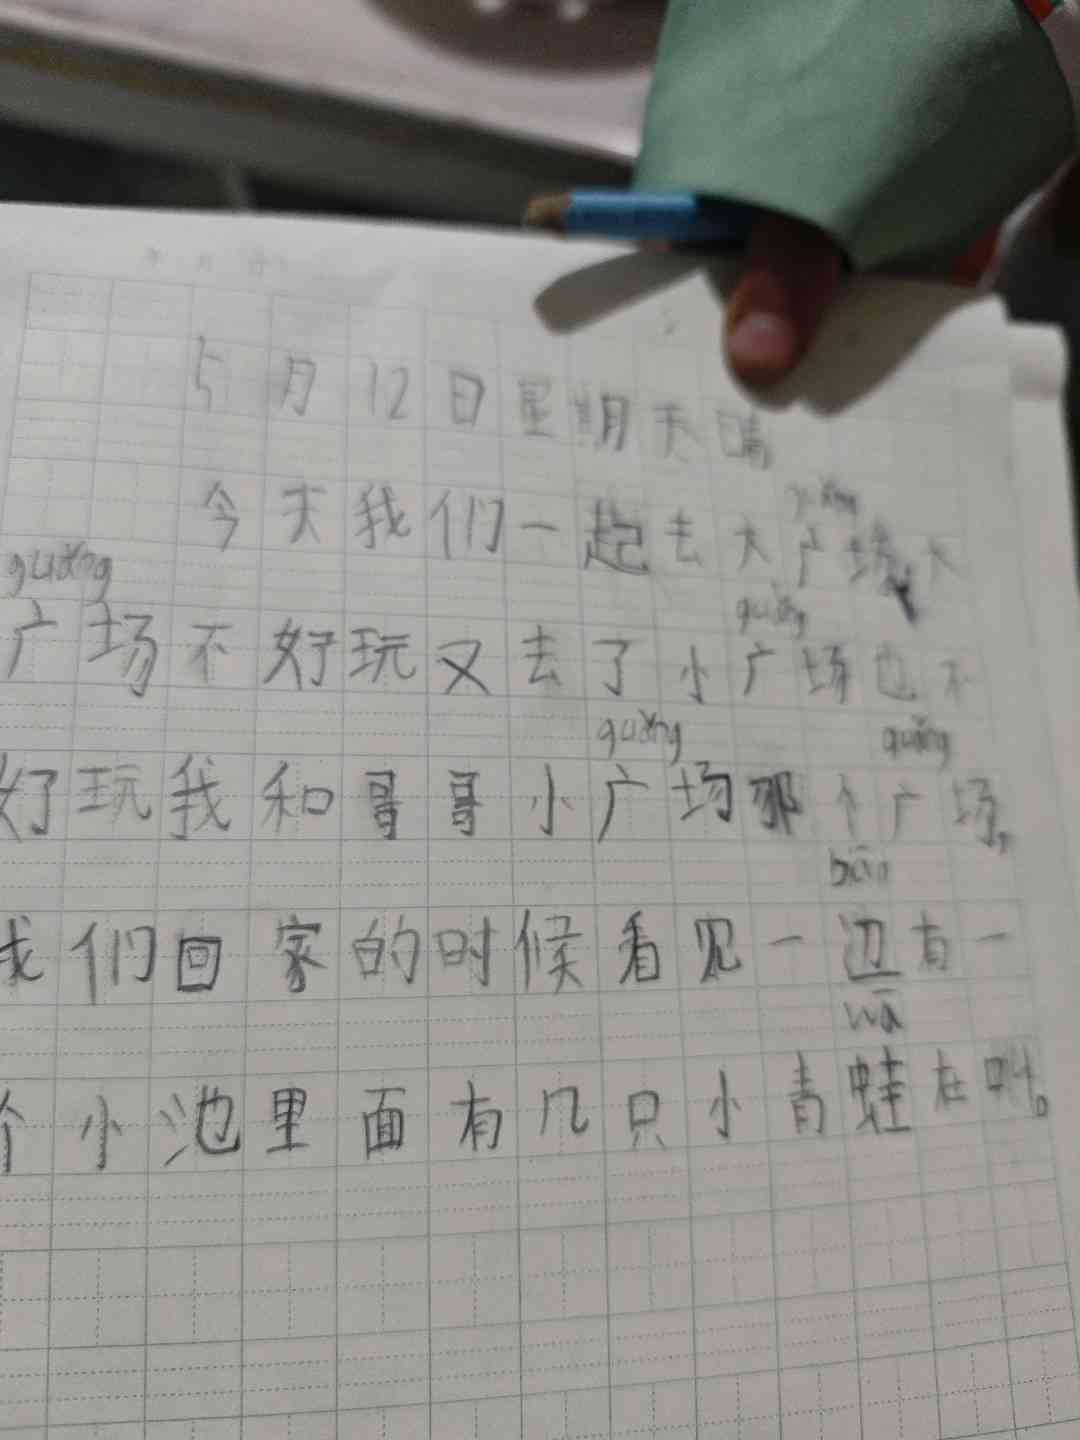 5月12日星期天晴
今天我们一起去大广场,大
guǎng
guǎng
广场不好玩又去了小广场也不
guǎng guǎng
好玩我和哥哥小广场那个广场,
biān
我们回家的时候看见一边有一
wā
个小池里面有几只小青蛙在叫。